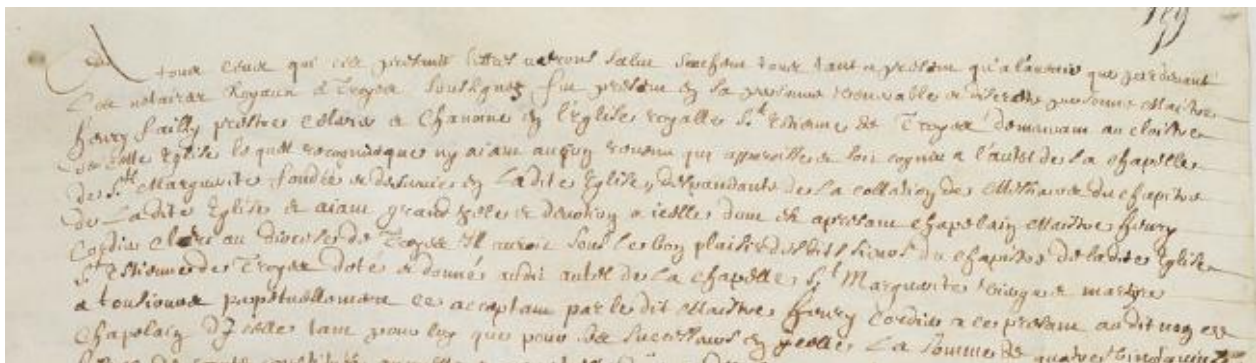 A tous ceux qui ces presente lettres verrons salut scachant tous tant a present qu'a l'avenir que pardevant
notaires Royaux a Troyes soulsignez fut present en sa personne venerable et discrete personne Maistre
henry failly prestre et chanoine en l'Eglise royalle St Estienne de Troyes demeurant au cloistre
de Eglise lequel recognu que ny aiant aucun revenu qui apparoisse a l'autel de la chapelle
de Ste Marguerite fondée et desservie en Ladite Eglise, dependante de la collation de Messieurs du chapitre
de Ladite Eglise et aiant grand zele et devotion a icelle dont est apresent chapelain Maistre henry
Cordier clerc au diocese de Troyes Il auroit sous le bon plaisir desdits sieurs du chapitre de ladite Eglise
St Estienne de Troyes doté et donné audit autel de La chapelle St Marguerite vierge et martyre
a tousiours perpetuellement ce acceptant par le dit Maistre henry Cordier a ce present audit nom de
Chapelain d'Icelle tant pour luy que pour ses successeurs en ycelle La somme de